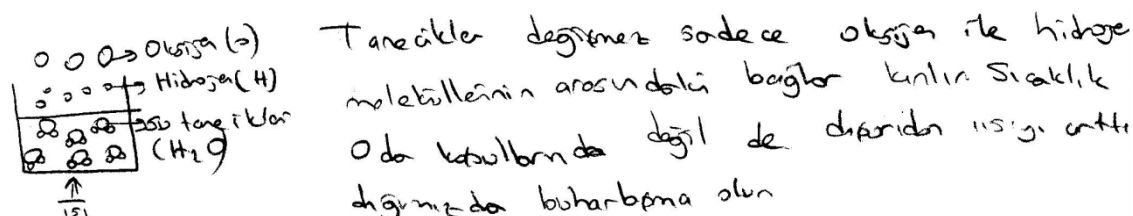 Oksijen (O)
Hidrojen (H)
su tanecikleri
(H₂O)
ısı
Tanecikler değişmez sadece oksijen ile hidroje
moleküllerinin arasındaki bağlar kırılır. Sıcaklık
Oda koşullarında değil de dışarıdan ısıyı arttı
dığımızda buharlaşma olur